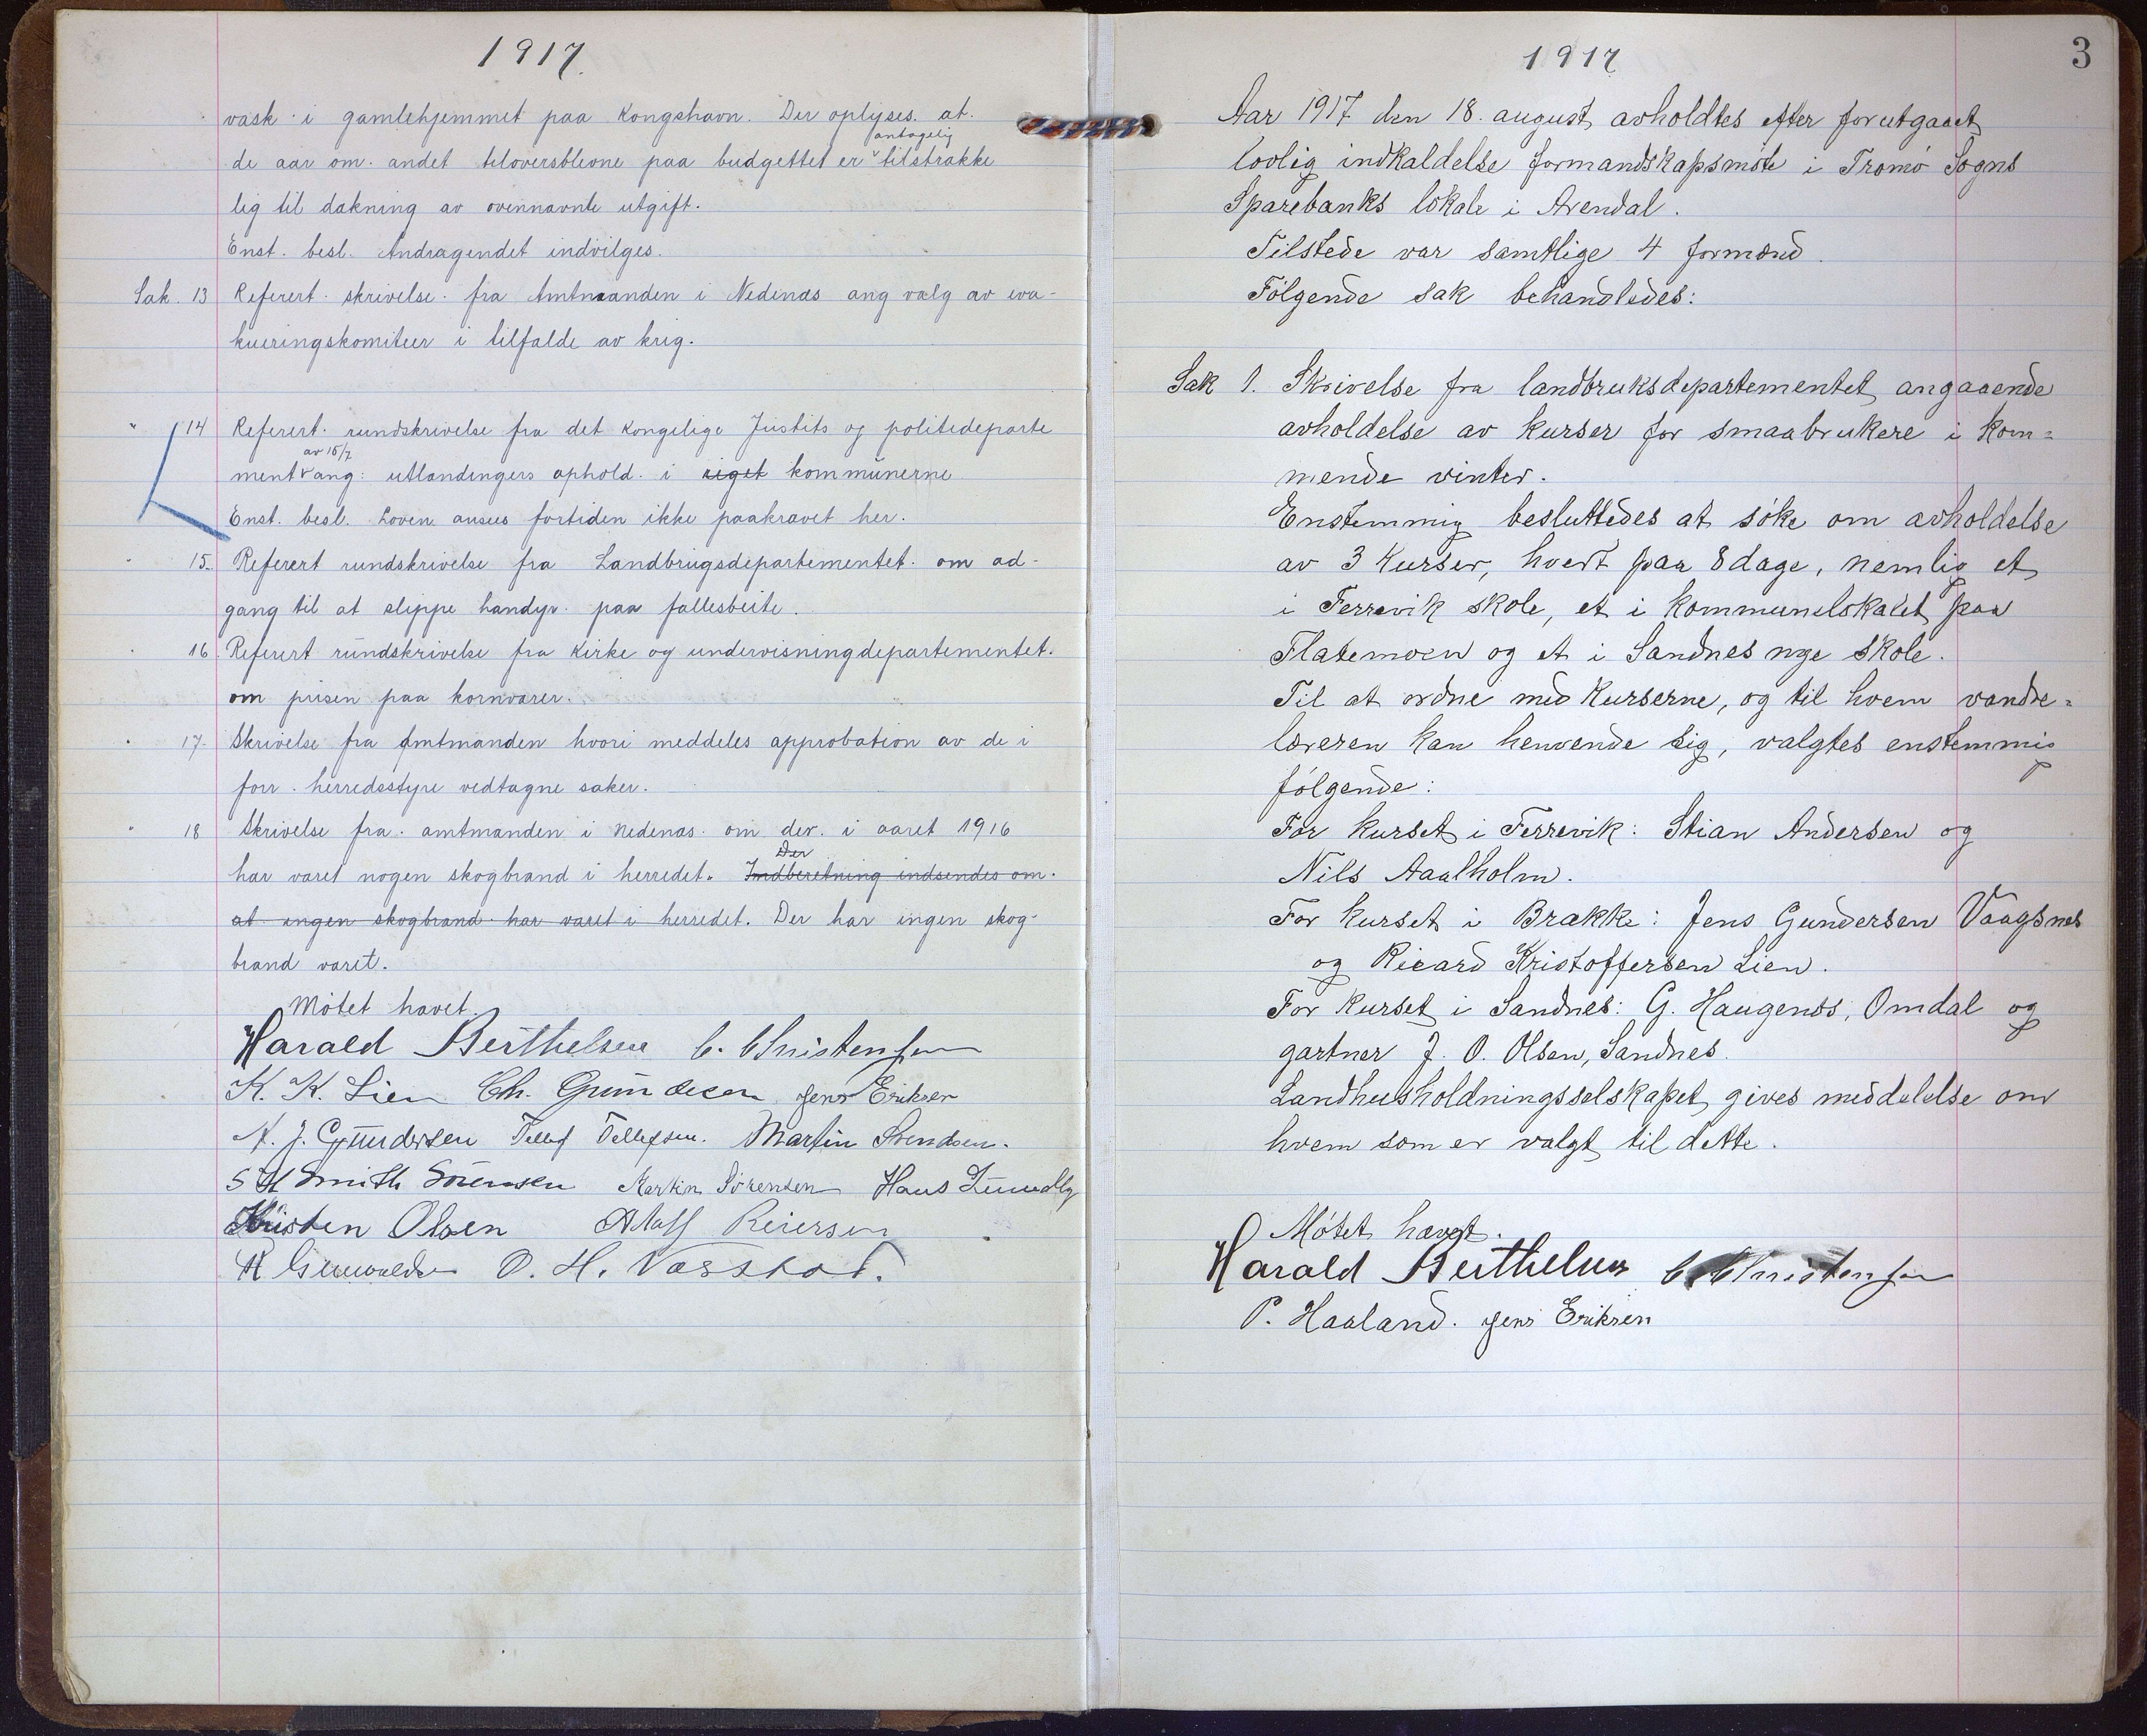 1917.
vask i gamlehjemmet paa Kongshavn. Der oplyses at
antagelig
de aar om andet tiloversblevne paa budgettet er tilstrække
lig til dækning av ovennævnte utgift.
Enst. besl. Andragendet indvilges.
Sak. 13 Referert skrivelse fra Amtmanden i Nedenæs ang valg av eva-
kueringskomiteer i tilfælde av krig.
" 14 Referert rundskrivelse fra det Kongelige Justits og politideparte
av 15/7
ment ang: utlændingers ophold i riget kommunerne
Enst. besl. Loven ansees fortiden ikke paakrævet her.
15. Referert rundskrivelse fra Landbrugsdepartementet om ad-
gang til at slippe handyr paa fællesbeite.
16. Referert rundskrivelse fra Kirke og undervisningdepartementet.
om prisen paa kornvarer.
17. Skrivelse fra Amtmanden hvori meddeles approbation av de i
forr. herredsstyre vedtagne saker.
" 18 Skrivelse fra amtmanden i Nedenæs om der i aaret 1916
Der
har været nogen skogbrand i herredet. Indberetning indsendes om
at ingen skogbrand har været i herredet. Der har ingen skog-
brand været.
Mötet hævet.
Harald Berthelsen C. Christensen
K. K. Lien Ch. Gundersen Jens Eriksen
N. J. Gundersen Tellef Tellefsen. Martin Svendsen.
S H Smith Sörensen Martin Sörensen Hans
Kristen Olsen Adolf Reiersen
O. H. Vasskot.
1917
3
Aar 1917 den 18. august avholdtes efter forutgaaet
lovlig indkaldelse formandskapsmöte i Tromö Sogns
Sparebanks lokale i Arendal.
Tilstede var samtlige 4 formænd.
Fölgende sak behandledes:
Sak 1. Skrivelse fra landbruksdepartementet angaaende
avholdelse av kurser for smaabrukere i kom=
mende vinter.
Enstemmig besluttedes at söke om avholdelse
av 3 Kurser, hvert paa 8 dage, nemlig et
i Færvik skole, et i kommunelokalet paa
Flatemoen og et i Sandnes nye skole.
Til at ordne med Kurserne, og til hvem vandre=
læreren kan henvende sig, valgtes enstemmig
fölgende:
For kurset i Færvik: Stian Andersen og
Nils Aaalholm.
For kurset i Brække: Jens Gundersen Vaagsnes
og Ricard Kristoffersen Lien.
For Kurset i Sandnes: G. Haugenes, Omdal og
gartner J. O. Olsen, Sandnes.
Landhusholdningsselskapet gives meddelelse om
hvem som er valgt til dette.
Mötet hævet.
Harald Berthelsen C. Christensen
P. Haaland. Jens Eriksen